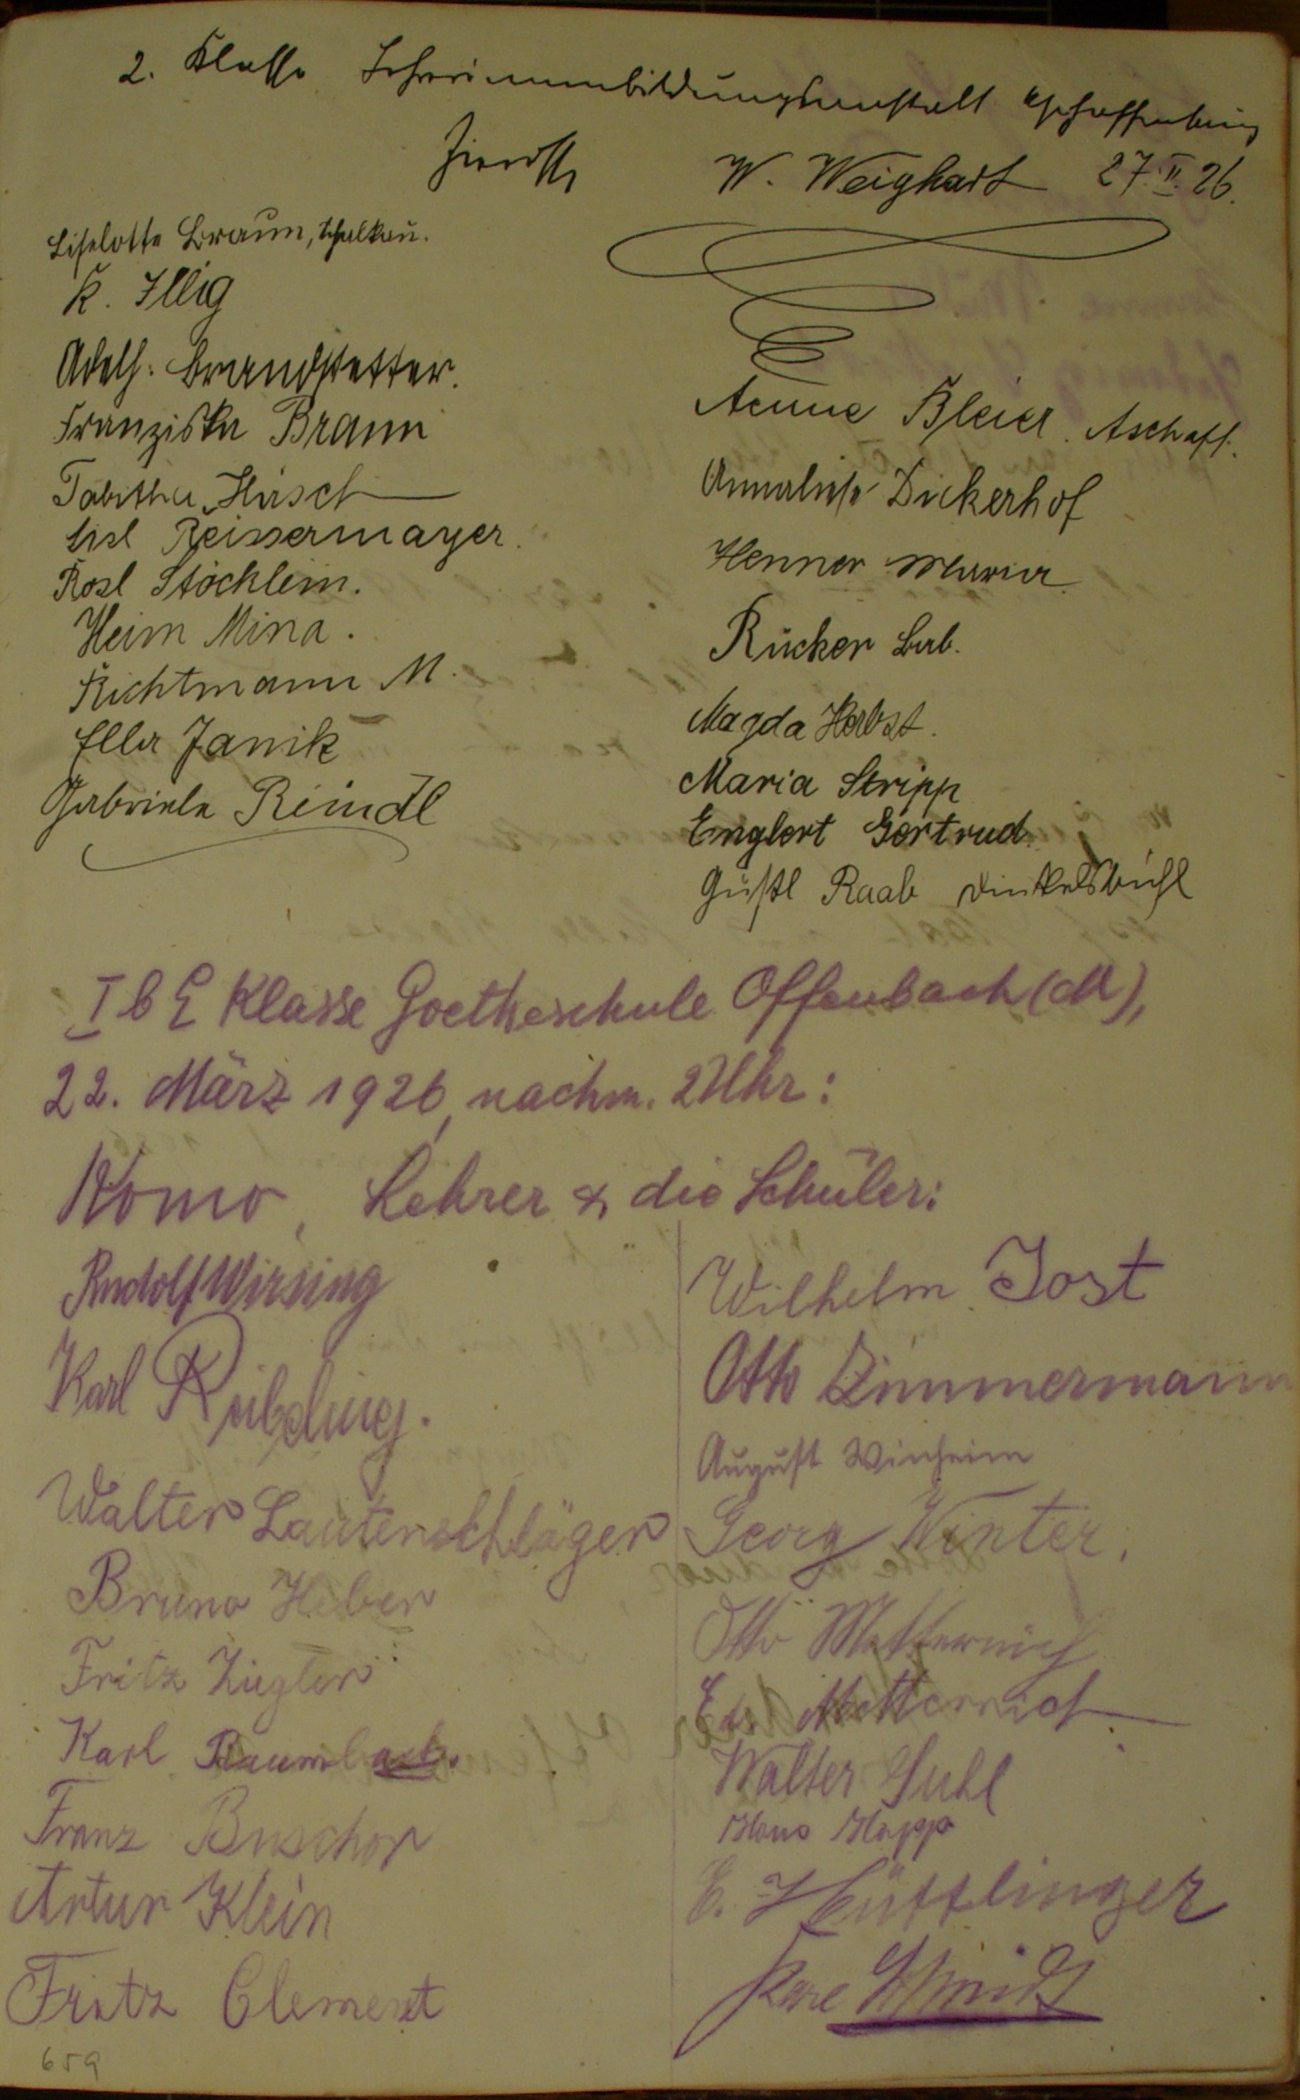 2. Klasse Lehrerinnenbildungsanstalt Aschaffenburg
W. Weighart 27.II.26.
Liselotte Braun,
K. Illig
Adelh. Brandstetter.
Franziska Braun
Tabitha Hirsch
Lisl Reissermayer.
Rosl Stöcklein.
Heim Mina.
Richtmann M.
Ella Janik
Gabriele Reindl
Aenne Bleier. Aschaff.
Annaliese Dickerhof
Henner Maria
Rücker Barb.
Magda Herbst.
Maria Stripp
Englert Gertrud.
Gustl Raab Dinkelsbühl
I b E Klasse Goetheschule Offenbach (M),
22. März 1926, nachm. 2 Uhr:
Momo, Lehrer & die Schüler:
Rudolf Wirsing
Karl
Walter Lautenschläger
Bruno Heber
Fritz Ziegler
Karl Baumbach.
Franz Buschor
Artur Klein
Fritz Clement
Wilhelm Jost
Otto Zimmermann
August Winheim
Georg Winter.
Otto Metternich
Ed. Metternich
Walter Suhl
Hans Happ
E. Hüttlinger
Karl Schmidt
659